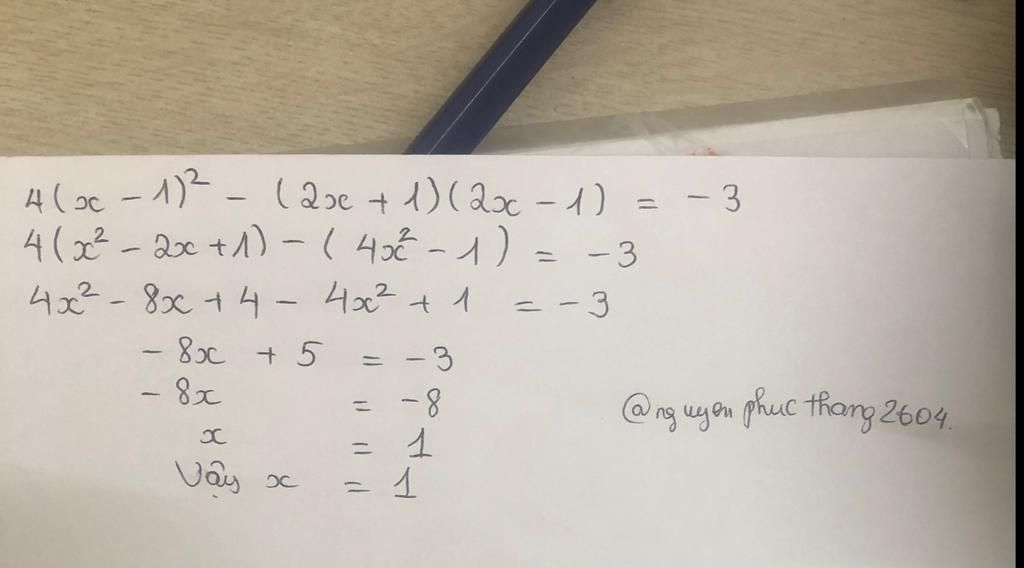 4(x - 1)² - (2x + 1)(2x - 1) = -3
4(x² - 2x + 1) - (4x² - 1) = -3
4x² - 8x + 4 - 4x² + 1 = -3
-8x + 5 = -3
-8x = -8
x = 1
Vậy x = 1
@nguyenphucthang2604.